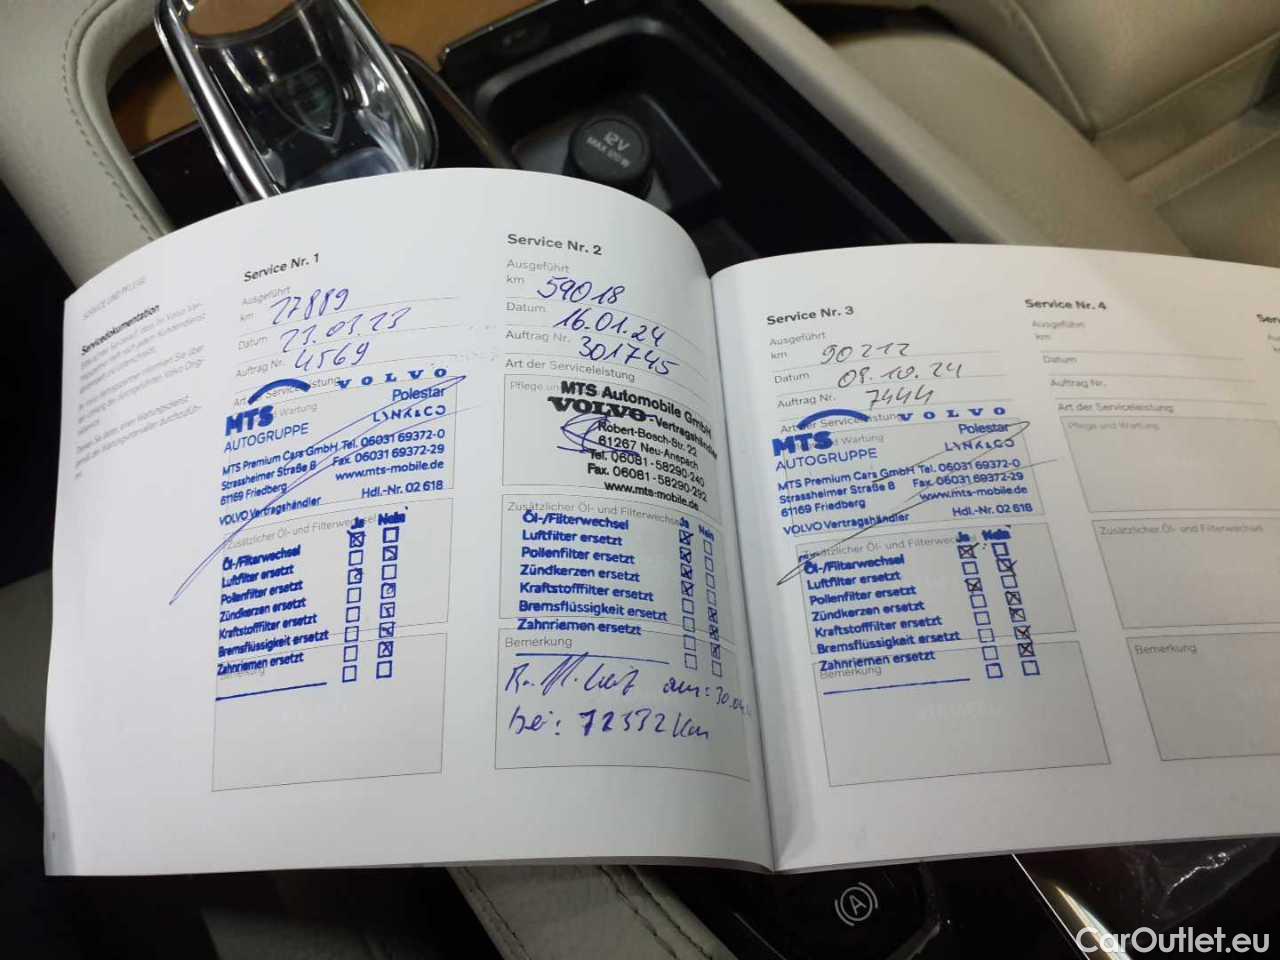 12V
MAX 120 W
SERVICE UND PFLEGE
Servicedokumentation
Service Nr. 1
Ausgeführt
km 27889
Datum 23.03.23
Auftrag Nr. 4569
Art der Serviceleistung
VOLVO
Polestar
LYNK&CO
MTS
AUTOGRUPPE
MTS Premium Cars GmbH Tel. 06031 69372-0
Strassheimer Straße 8 Fax 06031 69372-29
61169 Friedberg www.mts-mobile.de
VOLVO Vertragshändler Hdl.-Nr. 02 618
Zusätzlicher Öl- und Filterwechsel
Ja Nein
Öl-/Filterwechsel
Luftfilter ersetzt
Pollenfilter ersetzt
Zündkerzen ersetzt
Kraftstofffilter ersetzt
Bremsflüssigkeit ersetzt
Zahnriemen ersetzt
Bemerkung
Service Nr. 2
Ausgeführt
km 59018
Datum 16.01.24
Auftrag Nr. 301745
Art der Serviceleistung
Pflege un
MTS Automobile GmbH
VOLVO-Vertragshändler
Robert-Bosch-Str. 22
61267 Neu-Anspach
Tel. 06081 - 58290-240
Fax. 06081 - 58290-292
www.mts-mobile.de
Zusätzlicher Öl- und Filterwechsel
Ja Nein
Öl-/Filterwechsel
Luftfilter ersetzt
Pollenfilter ersetzt
Zündkerzen ersetzt
Kraftstofffilter ersetzt
Bremsflüssigkeit ersetzt
Zahnriemen ersetzt
Bemerkung
am: 30.04.
bei: 72332 Km
Service Nr. 3
Ausgeführt
km 90212
Datum 08.10.24
Auftrag Nr. 7444
Art der Serviceleistung
VOLVO
Polestar
LYNK&CO
MTS und Wartung
AUTOGRUPPE
MTS Premium Cars GmbH Tel. 06031 69372-0
Strassheimer Straße 8 Fax 06031 69372-29
61169 Friedberg www.mts-mobile.de
VOLVO Vertragshändler Hdl.-Nr. 02 618
Zusätzlicher Öl- und Filterwechsel
Ja Nein
Öl-/Filterwechsel
Luftfilter ersetzt
Pollenfilter ersetzt
Zündkerzen ersetzt
Kraftstofffilter ersetzt
Bremsflüssigkeit ersetzt
Zahnriemen ersetzt
Bemerkung
Service Nr. 4
Ausgeführt
km
Datum
Auftrag Nr.
Art der Serviceleistung
Pflege und Wartung
Zusätzlicher Öl- und Filterwechsel
Bemerkung
A
CarOutlet.eu